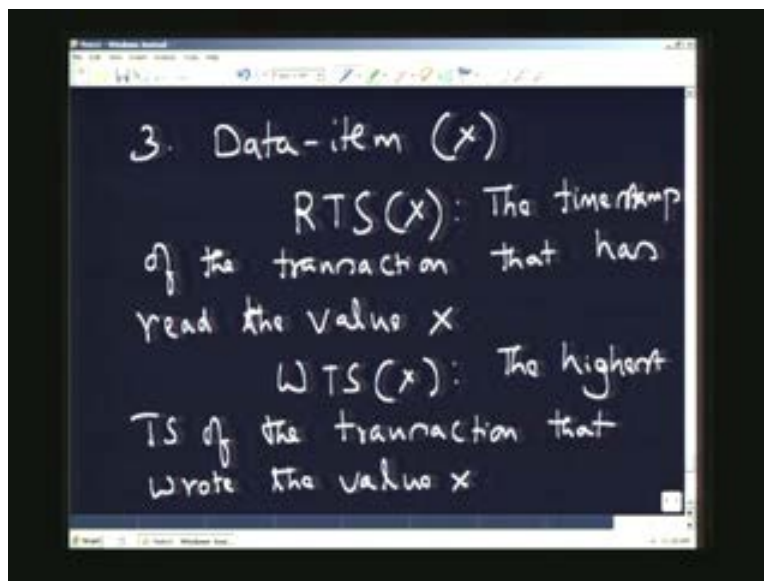 3. Data-item (x)
RTS(x): The timestamp
of the transaction that has
read the value x
WTS(x): The highest
TS of the transaction that
wrote the value x